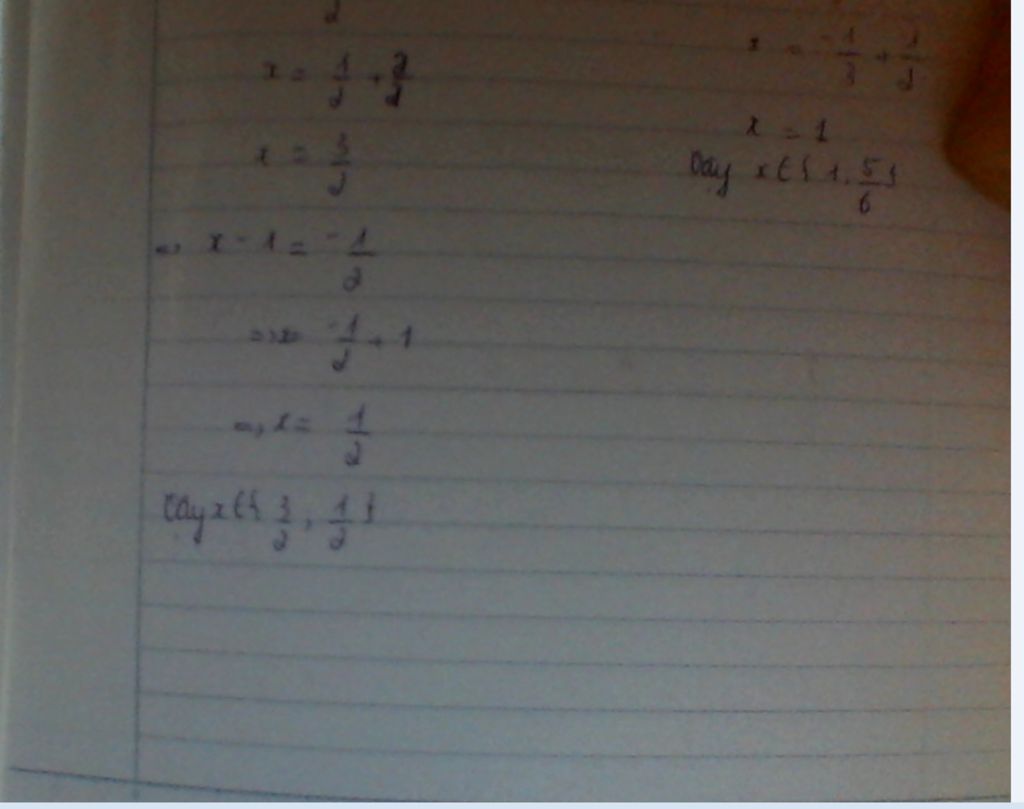 x = 1/2 + 2/2
x = 3/2
=> x - 1 = -1/2
=> x = -1/2 + 1
=> x = 1/2
Vậy x ∈ { 3/2 , 1/2 }
x = -1/3 + 1/2
x = 1
Vậy x ∈ { 1, 5/6 }